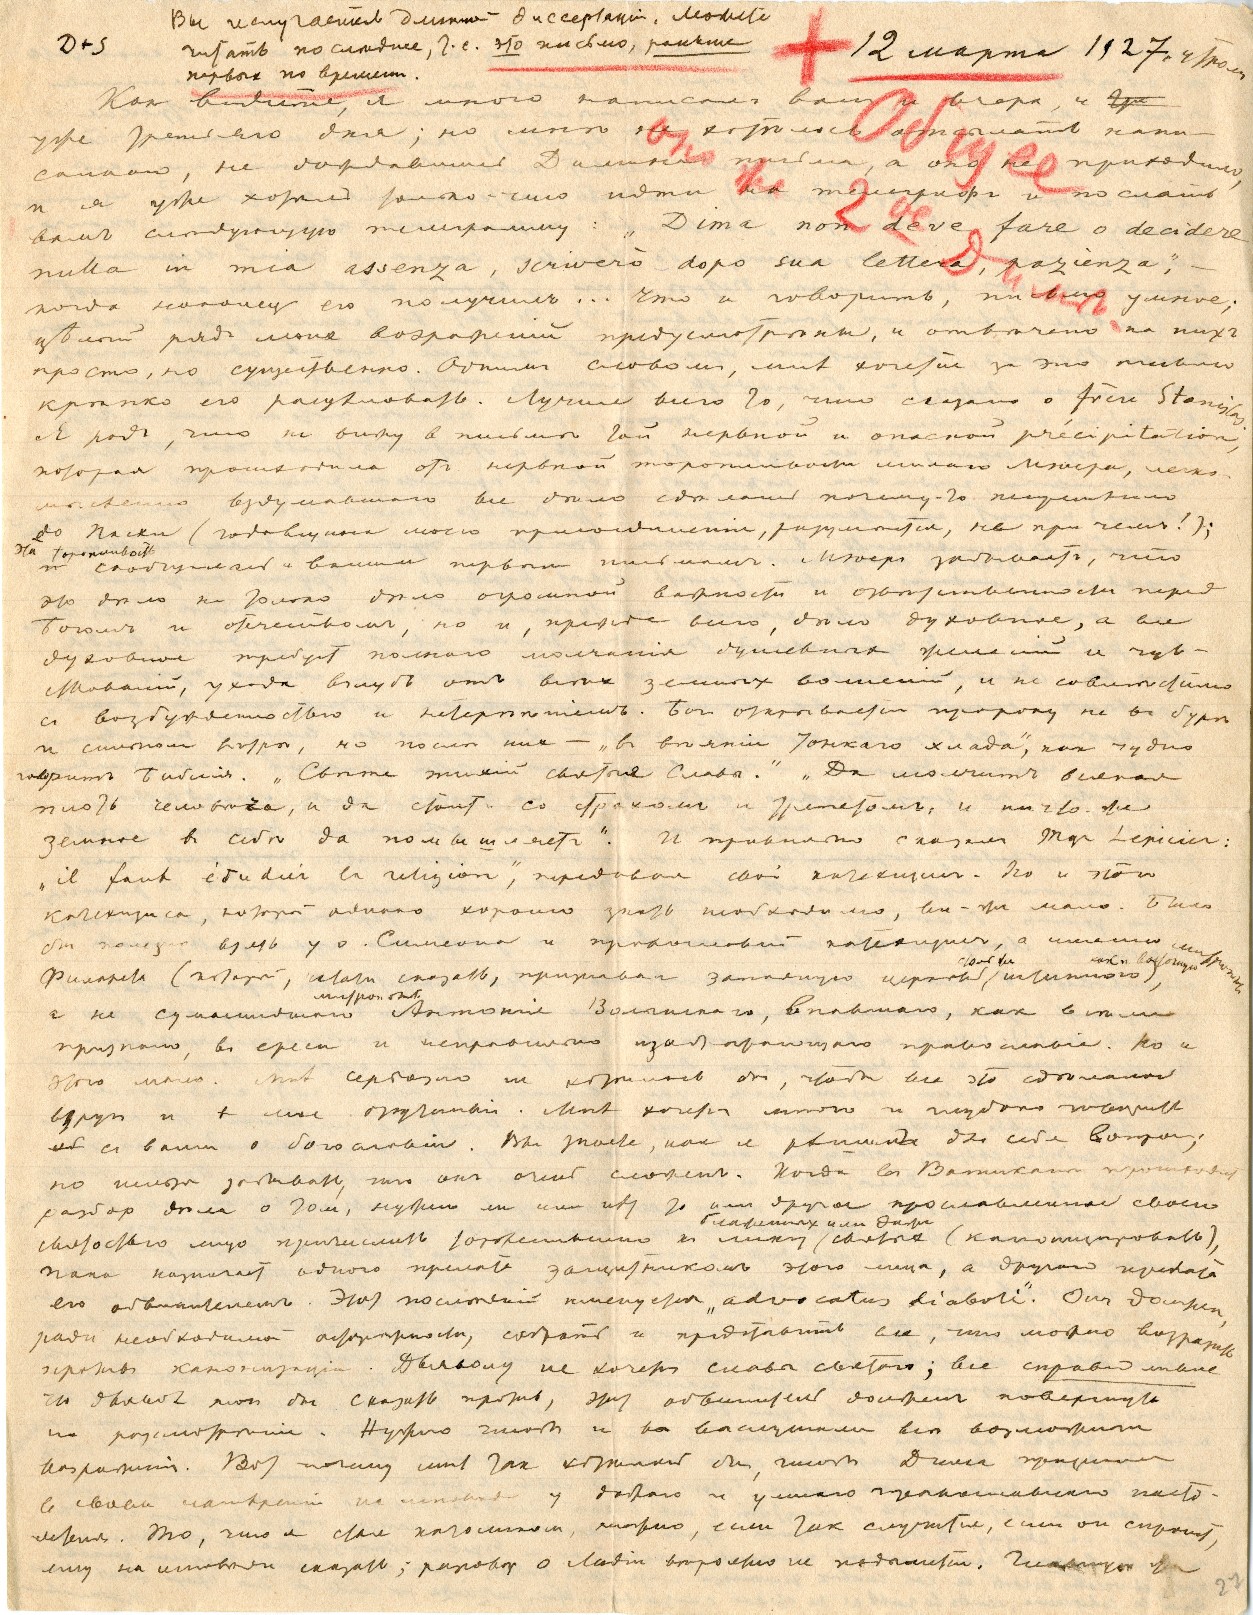 Вы испугаетесь длинной диссертаціи. Можете
D+S
читать последнее, т.е. это письмо, раньше
первых по времени.
12 марта 1927, утром
Как видите, я много написал вам и вчера, и
уже третьяго дня; но мне не хотелось отсылать напи-
санное, не дождавшись Диминаго письма, а оно не приходило,
и я уже хотел только-что идти на телеграф и послать
вам следующую телеграмму: „Dima non deve fare o decidere
nulla in mia assenza, scriverò dopo sua lettera, pazienza", —
когда наконец его получил... Что и говорить, письмо умное;
целый ряд моих возражений предусмотрены, и отвечено на них
просто, но существенно. Одним словом, мне хочется за это письмо
крепко его расцеловать. Лучше всего то, что сказано о frère Stanislas.
Я рад, что не вижу в письме той нервной и опасной précipitation,
которая происходила от нервной торопливости милаго Мюера, легко-
мысленно вздумавшаго все дело сделать почему-то непременно
до Пасхи (годовщина моего присоединенія, разумеется, не при чем!);
эта торопливость
сообщилась и вашим первым письмам. Мюер забывает, что
это дело не только дело огромной важности и ответственности перед
Богом и отечеством, но и, прежде всего, дело духовное, а все
духовное требует полнаго молчанія душевных желаній и чув-
ствованій, ухода вглубь от всех земных волненій, и не совместимо
с возбужденностью и нетерпеніем. Бог открывается пророку не в буре
и сильном ветре, но после них — „в веяніи тонкаго хлада", как чудно
говорит Библия. „Свете тихій святыя Славы." „Да молчит всякая
плоть человеча, и да стоит со страхом и трепетом, и ничто же
земное в себе да помышляет". И правильно сказал Mgr Lépicier:
„il faut étudier la religion", передавая свой катехизис. Но и этого
катехизиса, который однако хорошо знать необходимо, все-же мало. Было
бы полезно взять у о. Симеона и православный катехизис, а именно митрополита
Филарета (который, кстати сказать, признавал западную церковь столь же истинною, как и восточную),
а не сумасшедшаго митрополита Антонія Волынскаго, впавшаго, как всеми
признано, в ереси и неправильно излагающаго православіе. Но и
этого мало. Мне сердечно не хотелось бы, чтобы все это сделалось
вдруг и в мое отсутствіи. Мне хочется много и глубоко говорить
с вами о богословіи. Вы знаете, как я решил для себя вопрос;
но нельзя забывать, что он очень сложен. Когда в Ватикане происходит
разбор дела о том, нужно ли или нет то или другое прославленное своею
святостью лицо причислить торжественно к лику блаженных или даже святых (канонизировать),
папа назначает одного прелата защитником этого лица, а другого прелата
его обвинителем. Этот последний именуется „advocatus diaboli". Он должен,
ради необходимой осторожности, собрать и представить все, что можно возразить
против канонизаціи. Дьяволу не хочется славы святого; все справедливое
что дьявол мог бы сказать против, этот обвинитель должен повергнуть
на разсмотреніе. Нужно чтобы и вы выслушали все возможныя
возраженія. Вот почему мне так хотелось бы, чтобы Дима признался
в своем намереніи на исповеди у добраго и умнаго православнаго пасты-
ря. То, что я стал католиком, можно, если так случится, если он спросит,
ему на исповеди сказать; разговор о Лидіи вероятно не подымется.
Общее
оно же 2ое Диме.
22